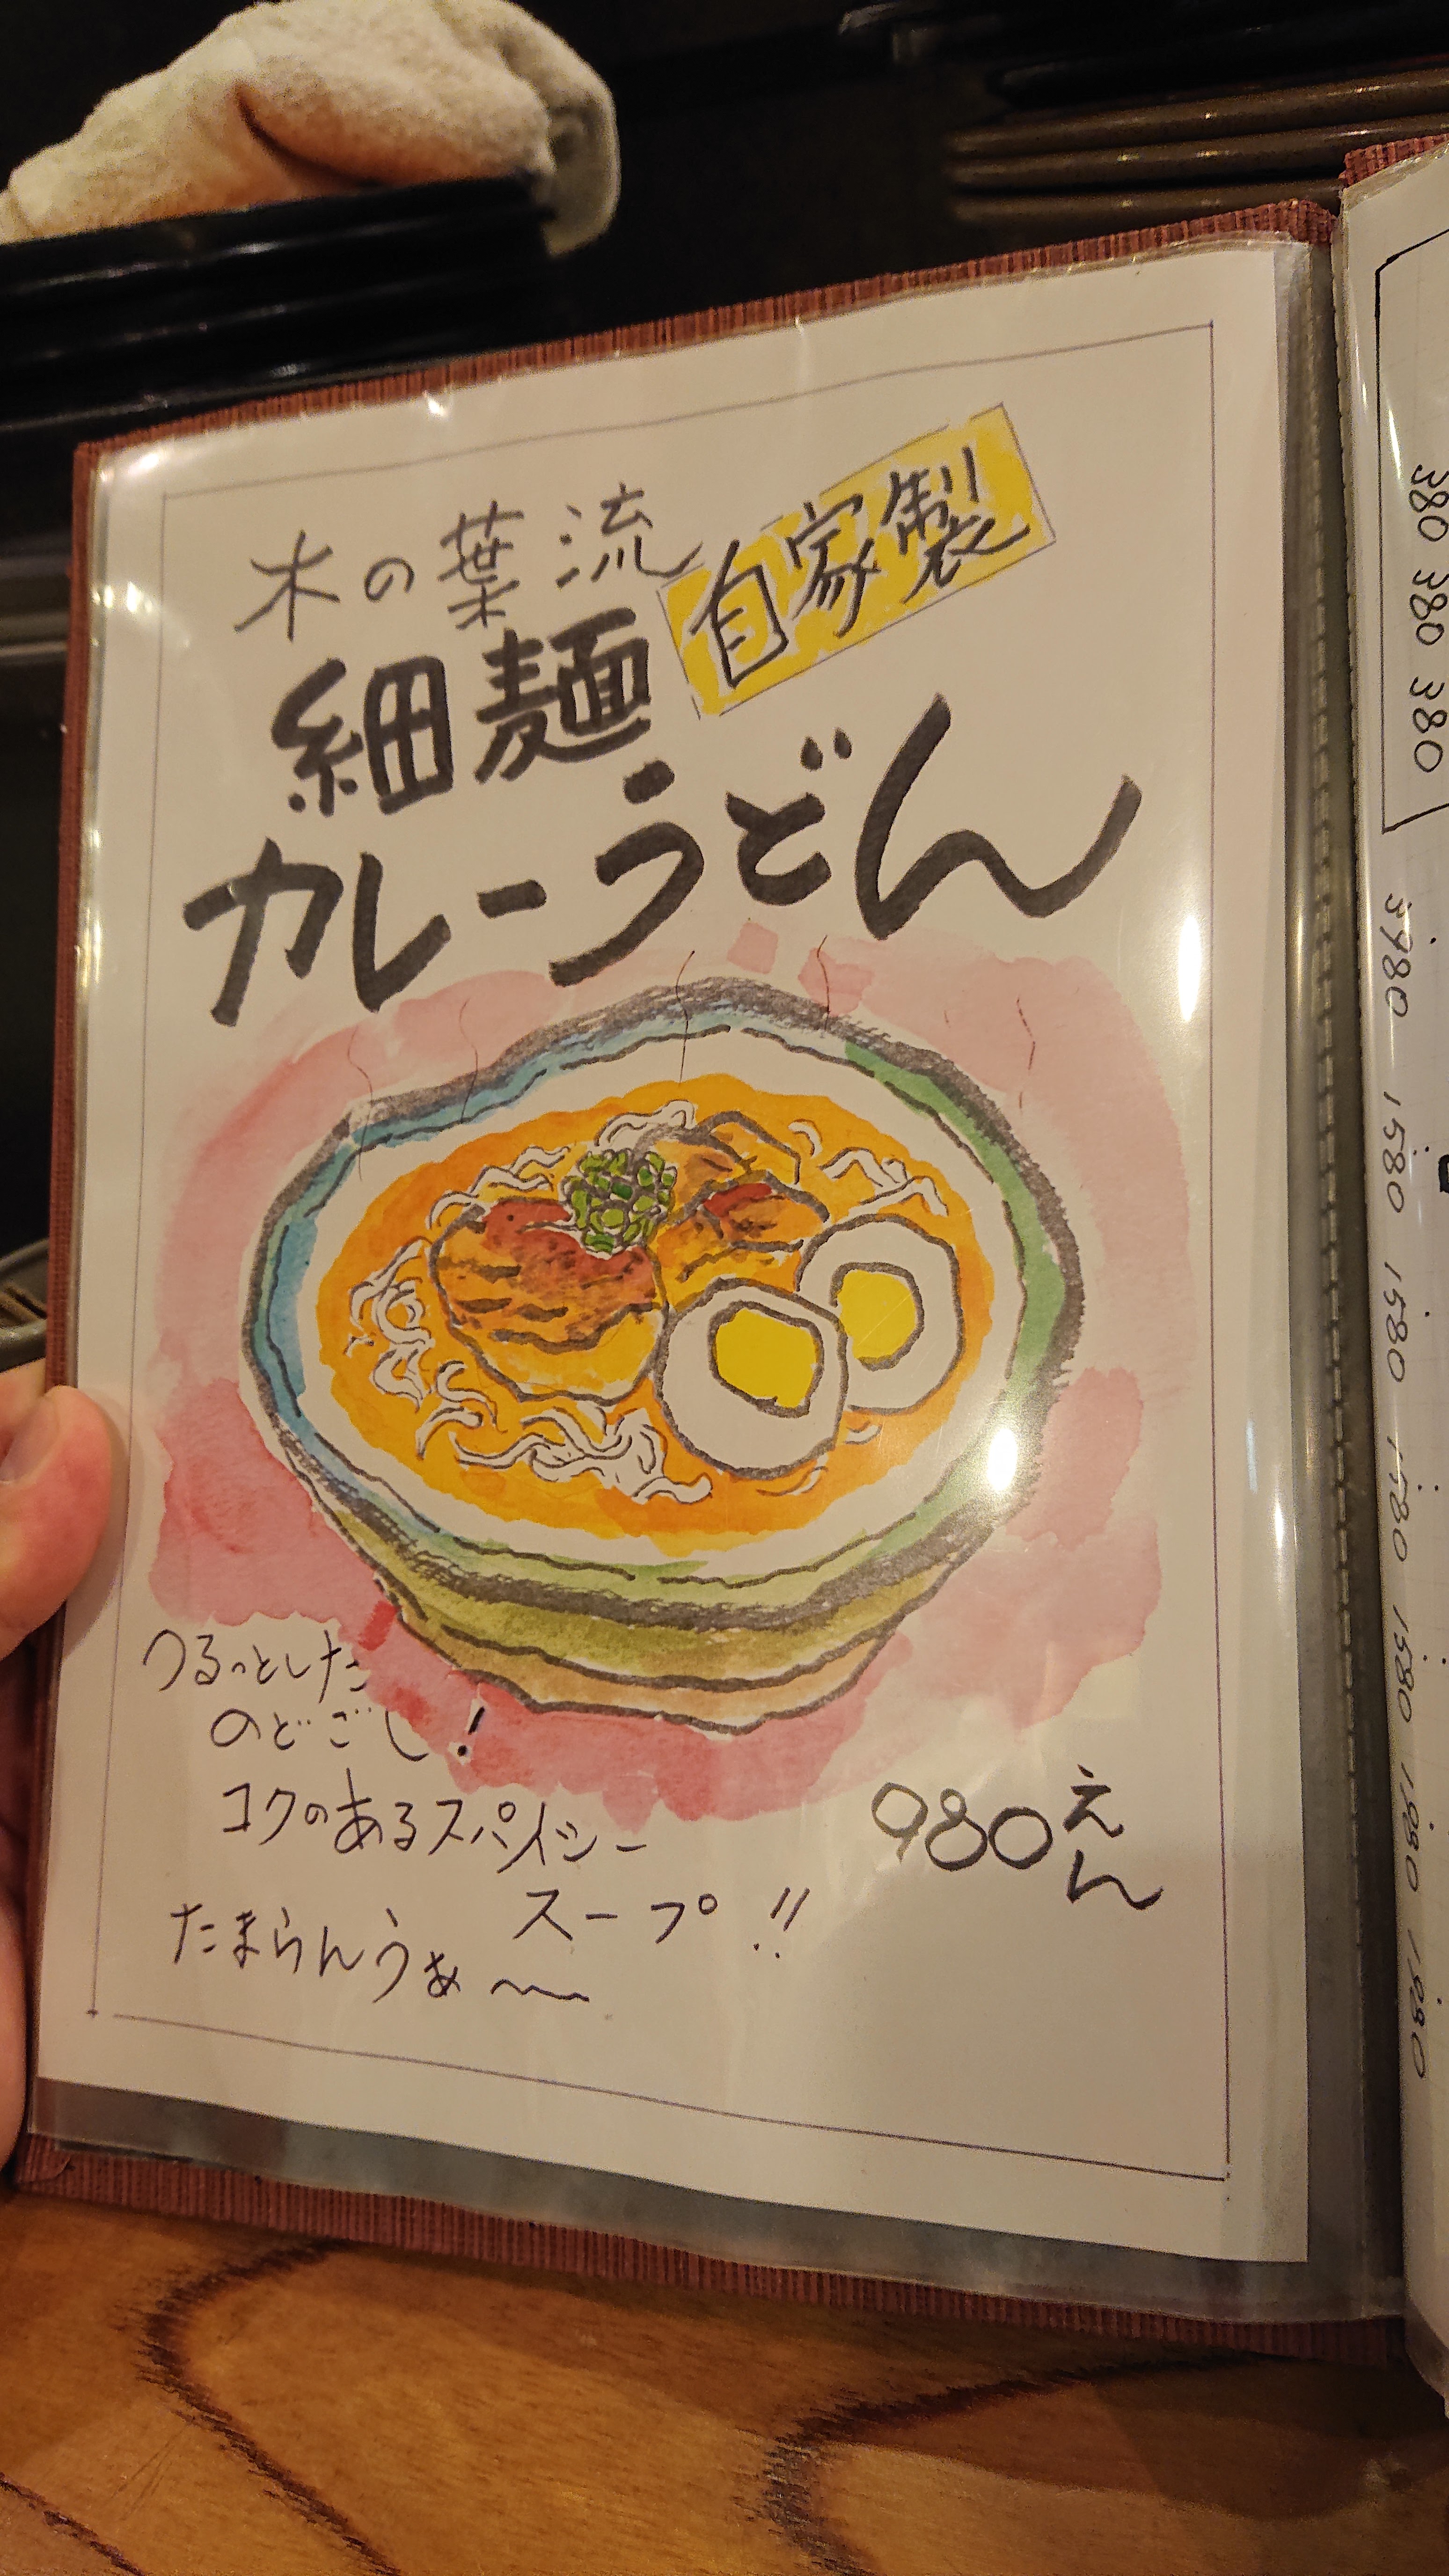 木の葉流
自家製
細麺
カレーうどん
つるっとした
のどごし!
コクのあるスパイシー
スープ!!
たまらんうぁ〜
980えん
380 380 380
3980 1580 1580 1580 1580 1980 1980